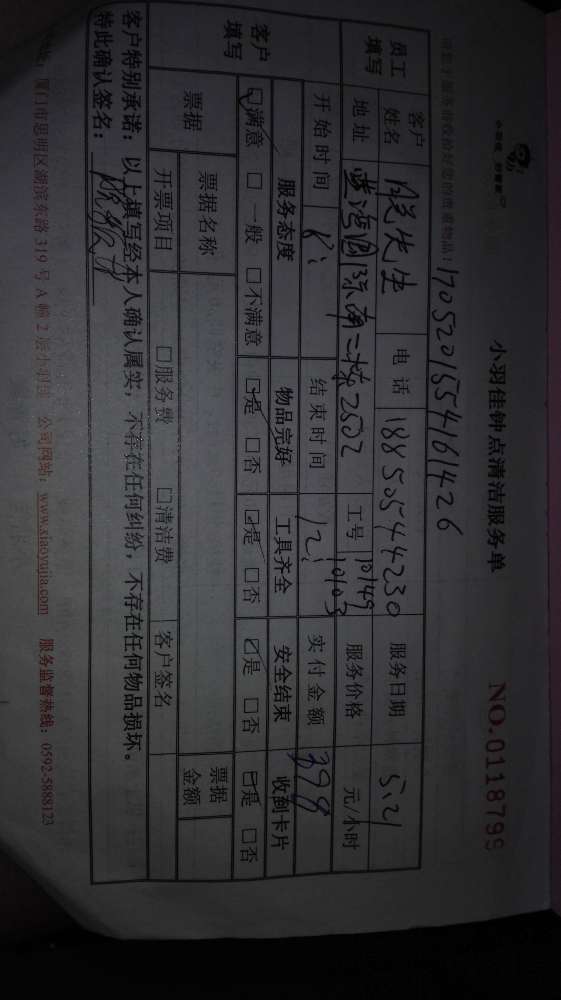 小羽佳钟点清洁服务单
NO.0118799
1705201554161426
员工填写
客户姓名 先生 电话 18850544230 服务日期 5.21
地址 蓝湾国际南二栋2502 工号 10149 10103 服务价格 元/小时
开始时间 8: 结束时间 12: 实付金额 399
客户填写
服务态度 物品完好 工具齐全 安全结束 收到卡片
☑满意 □一般 □不满意 ☑是 □否 ☑是 □否 ☑是 □否 ☑是 □否
票据
票据名称 票据金额
开票项目 □服务费 □清洁费 客户签名
客户特别承诺：以上填写经本人确认属实，不存在任何纠纷，不存在任何物品损坏。
特此确认签名：
厦门市思明区湖滨东路 319 号 A 幢 2 层小羽佳 公司网站：www.xiaoyujia.com 服务监督热线：0592-5888123